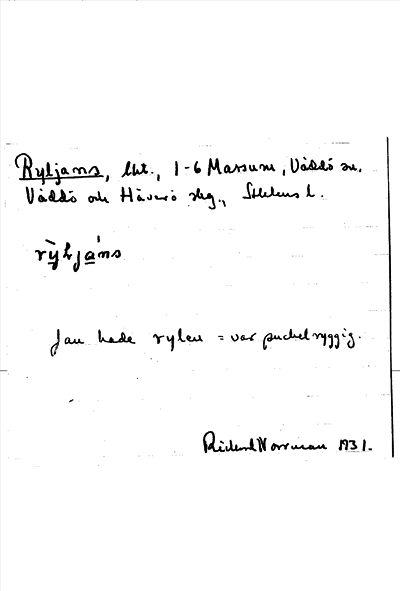 Ryljans, lht., 1-6 Massum, Väddö sn.
Väddö och Häverö skg., Sthlms l.
rỳljáns
Jan hade rylen = var puckelryggig.
Rickard Norrman 1931.